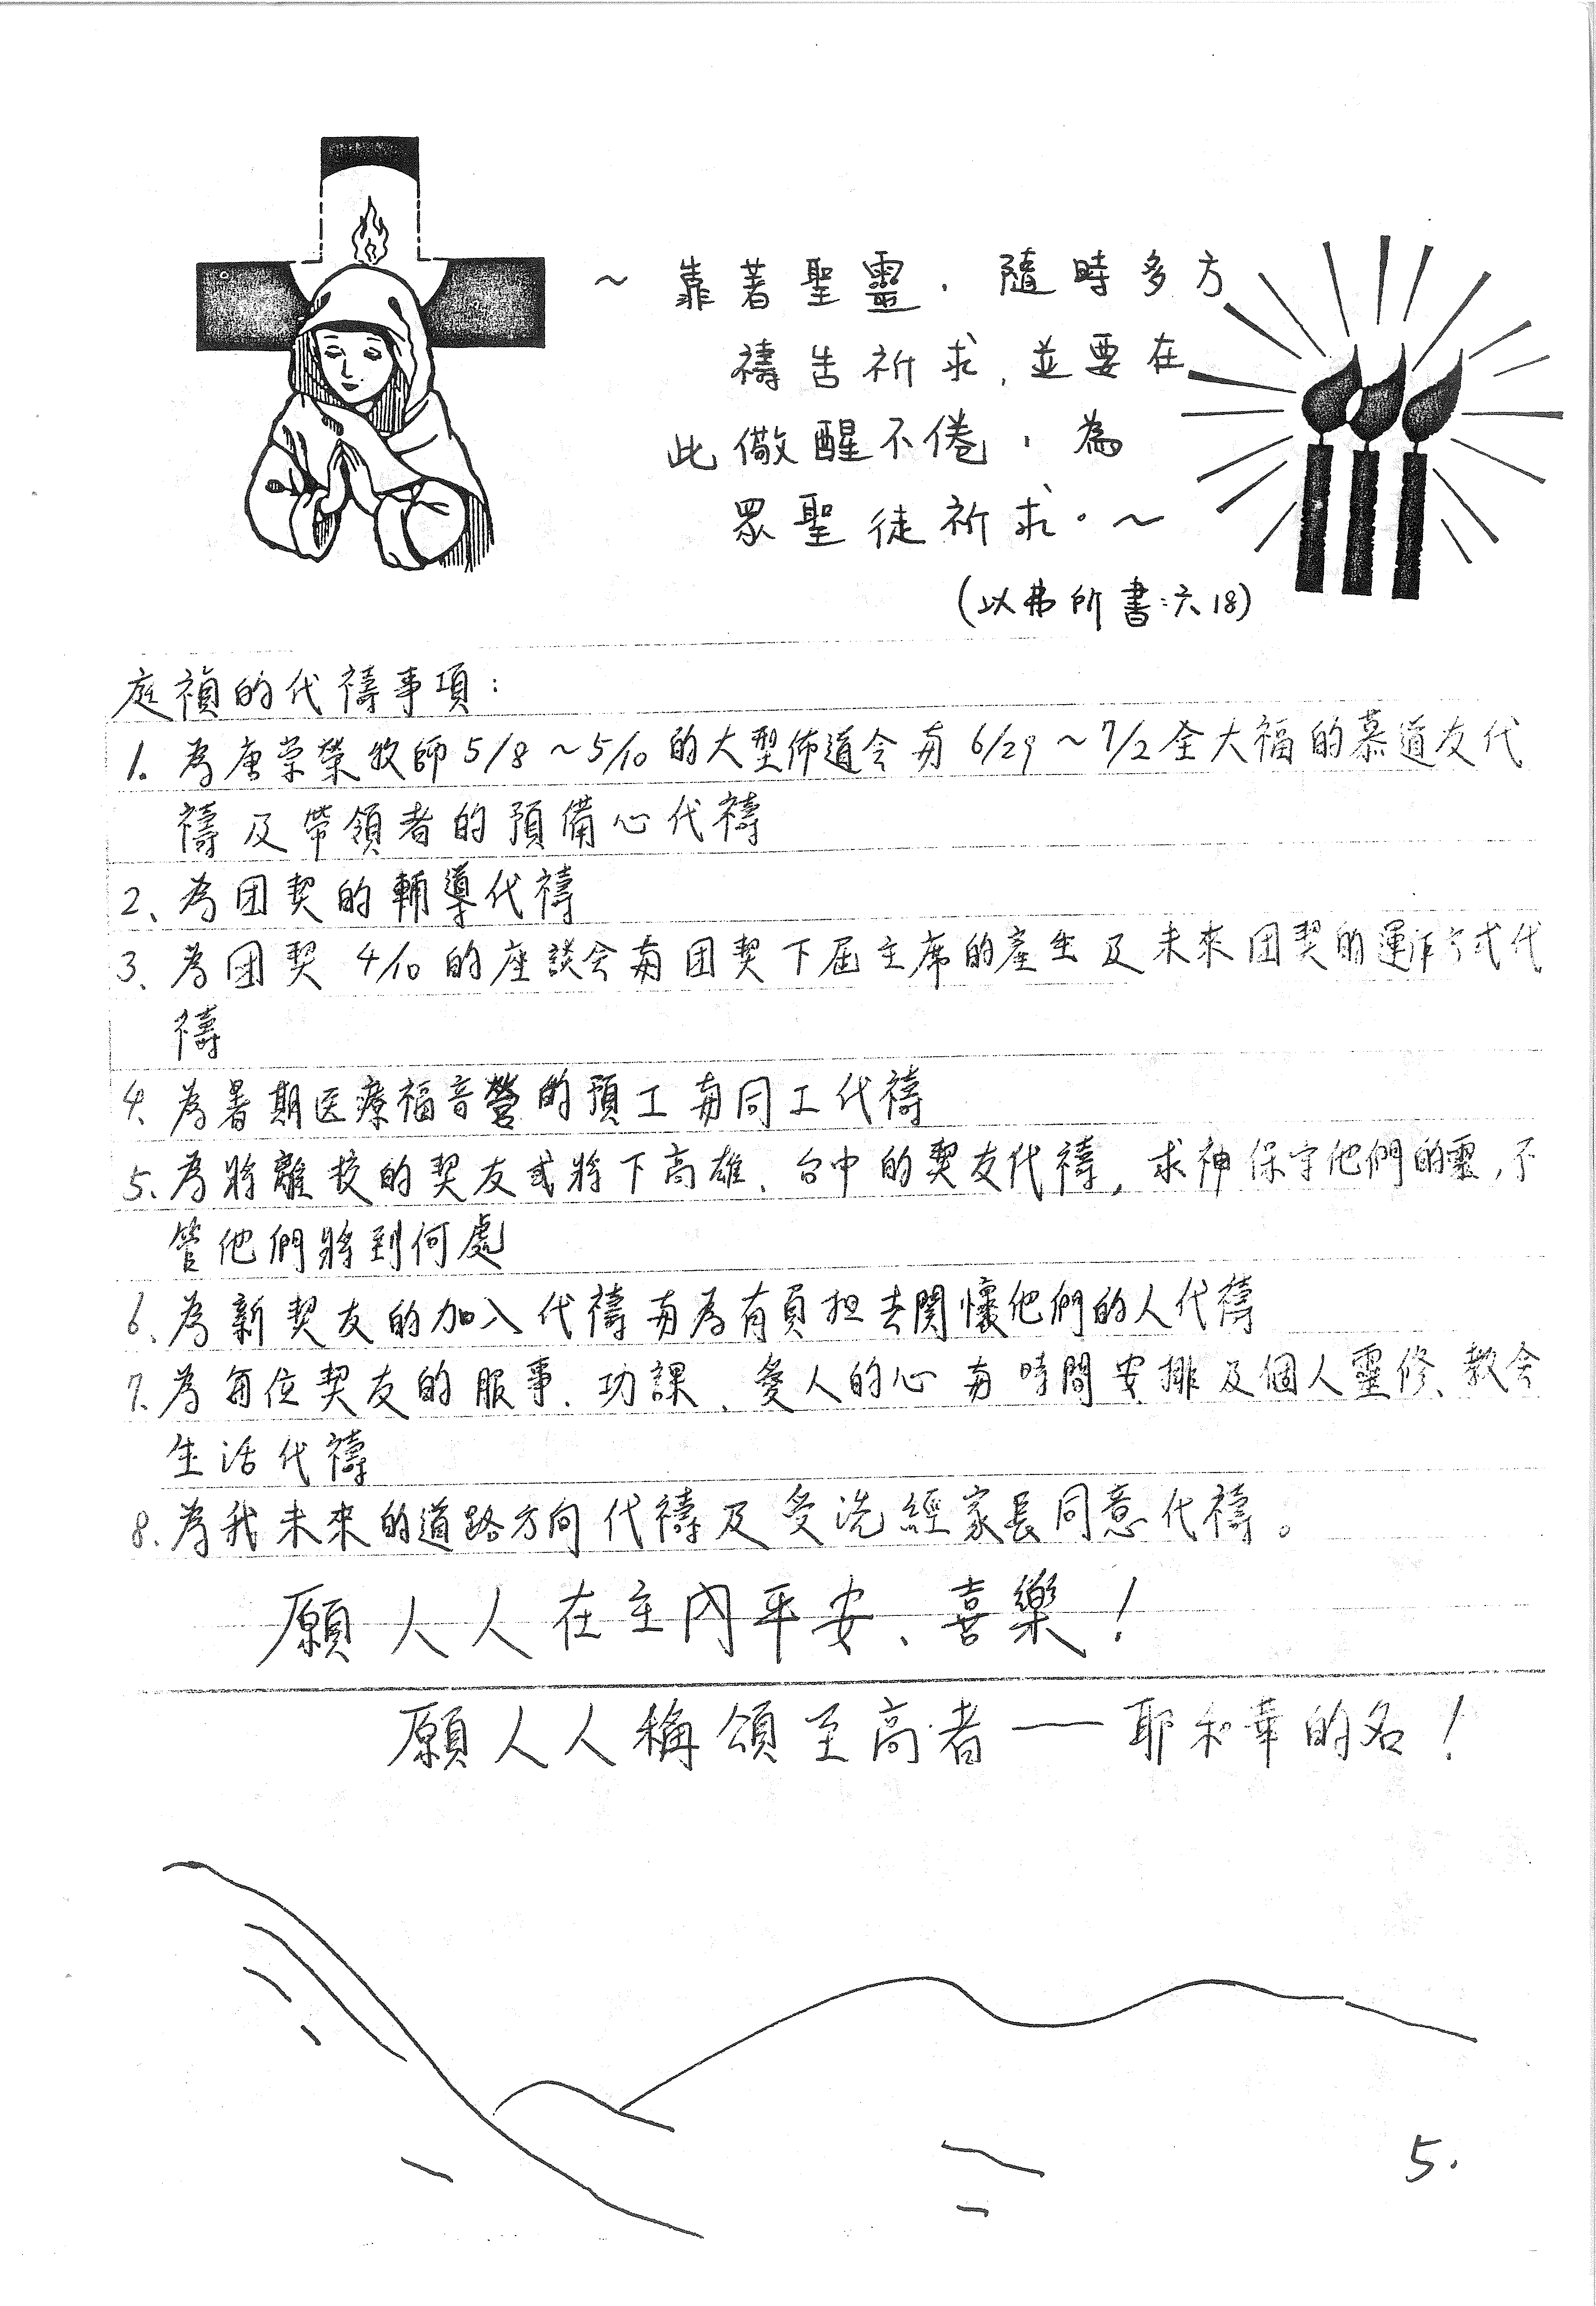 ～ 靠著聖靈，隨時多方
禱告祈求，並要在
此儆醒不倦，為
眾聖徒祈求。～
(以弗所書:六18)
庭禎的代禱事項：
1. 為唐崇榮牧師5/8～5/10的大型佈道会与6/29～7/2全大福的慕道友代
禱及帶領者的預備心代禱
2、為团契的輔導代禱
3、為团契 4/10的座談会与团契下屆主席的產生及未來团契的運作方式代
禱
4、為暑期医療福音營的預工与同工代禱
5、為將離校的契友或將下高雄、台中的契友代禱，求神保守他們的靈，不
管他們將到何處
6、為新契友的加入代禱与為有負担去関懷他們的人代禱
7、為每位契友的服事、功課、愛人的心与時間安排及個人靈修、教会
生活代禱
8、為我未來的道路方向代禱及受洗經家長同意代禱。
願人人在主內平安、喜樂！
願人人稱頌至高者——耶和華的名！
5.